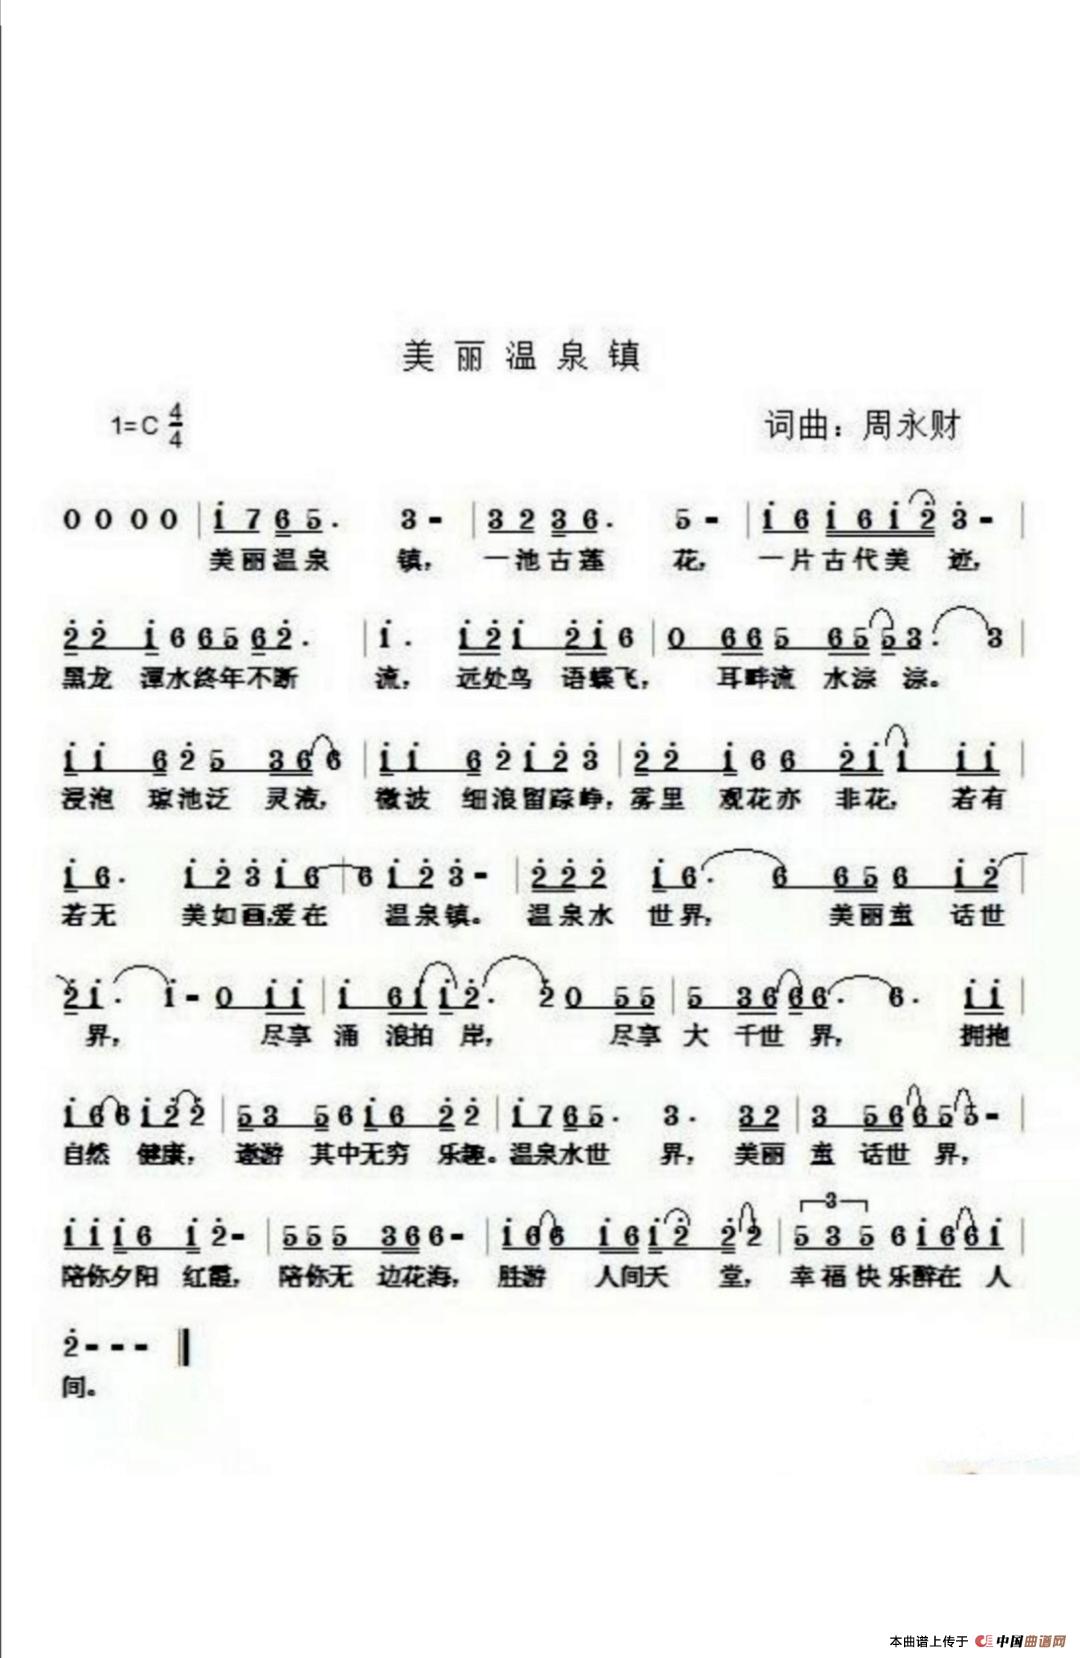 美丽温泉镇
1=C 4/4 词曲：周永财
0 0 0 0 | i 7 6 5 · 3 - | 3 2 3 6 · 5 - | i 6 i 6 i 2̇ 3̇ - |
美丽温泉 镇， 一池古莲 花， 一片古代美 迹，
2̇ 2̇ i 6 6 5 6 2̇ · | i · i 2̇ i 2̇ i 6 | 0 6 6 5 6 5 5 3 · 3 |
黑龙 潭水终年不断 流， 远处鸟 语蝶飞， 耳畔流 水淙 淙。
i i 6 2̇ 5 3 6 6 | i i 6 2̇ i 2̇ 3̇ | 2̇ 2̇ i 6 6 2̇ i i i i |
浸泡 琼池泛 灵液， 微波 细浪留踪峥，雾里 观花亦 非花， 若有
i 6 · i 2̇ 3̇ i 6 | 6 i 2̇ 3̇ - | 2̇ 2̇ 2̇ i 6 · 6 6 5 6 i 2̇ |
若无 美如画，爱在 温泉镇。 温泉水 世界， 美丽 话世
2̇ i · i - 0 i i | i 6 i i 2̇ · 2 0 5 5 | 5 3 6 6 6 · 6 · i i |
界， 尽享 涌 浪拍 岸， 尽享 大 千世 界， 拥抱
i 6 6 i 2̇ 2̇ | 5 3 5 6 i 6 2̇ 2̇ | i 7 6 5 · 3 · 3 2 | 3 5 6 6 5 5 - |
自然 健康， 遨游 其中无穷 乐趣。温泉水世 界， 美丽 话世 界，
i i i 6 i 2̇ - | 5 5 5 3 6 6 - | i 6 6 i 6 i 2̇ 2̇ 2̇ | 3 5 3 5 6 i 6 6 i |
陪你夕阳 红霞， 陪你无 边花海， 胜游 人间天 堂， 幸福快乐醉在 人
2̇ - - -
间。
本曲谱上传于 中国曲谱网